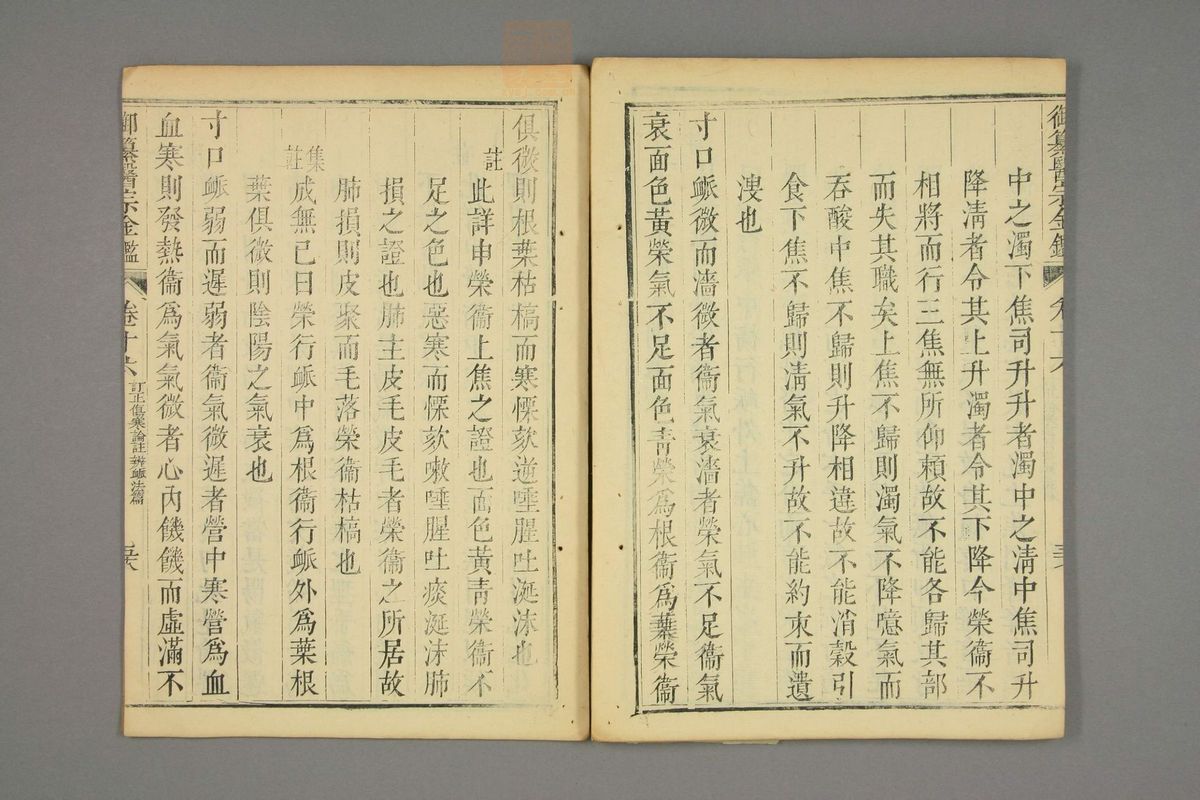 御纂醫宗金鑑
中之濁下焦司升升者濁中之淸中焦司升
降淸者令其上升濁者令其下降今榮衞不
相將而行三焦無所仰賴故不能各歸其部
而失其職矣上焦不歸則濁氣不降噫氣而
吞酸中焦不歸則升降相違故不能消穀引
食下焦不歸則淸氣不升故不能約束而遺
溲也
寸口脈微而濇微者衞氣衰濇者榮氣不足衞氣
衰面色黃榮氣不足面色靑榮爲根衞爲葉榮衞
俱微則根葉枯槁而寒慄欬逆唾腥吐涎沫也
註
此詳申榮衞上焦之證也面色黃靑榮衞不
足之色也惡寒而慄欬嗽唾腥吐痰涎沫肺
損之證也肺主皮毛皮毛者榮衞之所居故
肺損則皮聚而毛落榮衞枯槁也
集註
成無己曰榮行脈中爲根衞行脈外爲葉根
葉俱微則陰陽之氣衰也
寸口脈弱而遲弱者衞氣微遲者營中寒營爲血
血寒則發熱衞爲氣氣微者心內饑饑而虛滿不
御纂醫宗金鑑 卷十六 訂正傷寒論註辨脈法篇